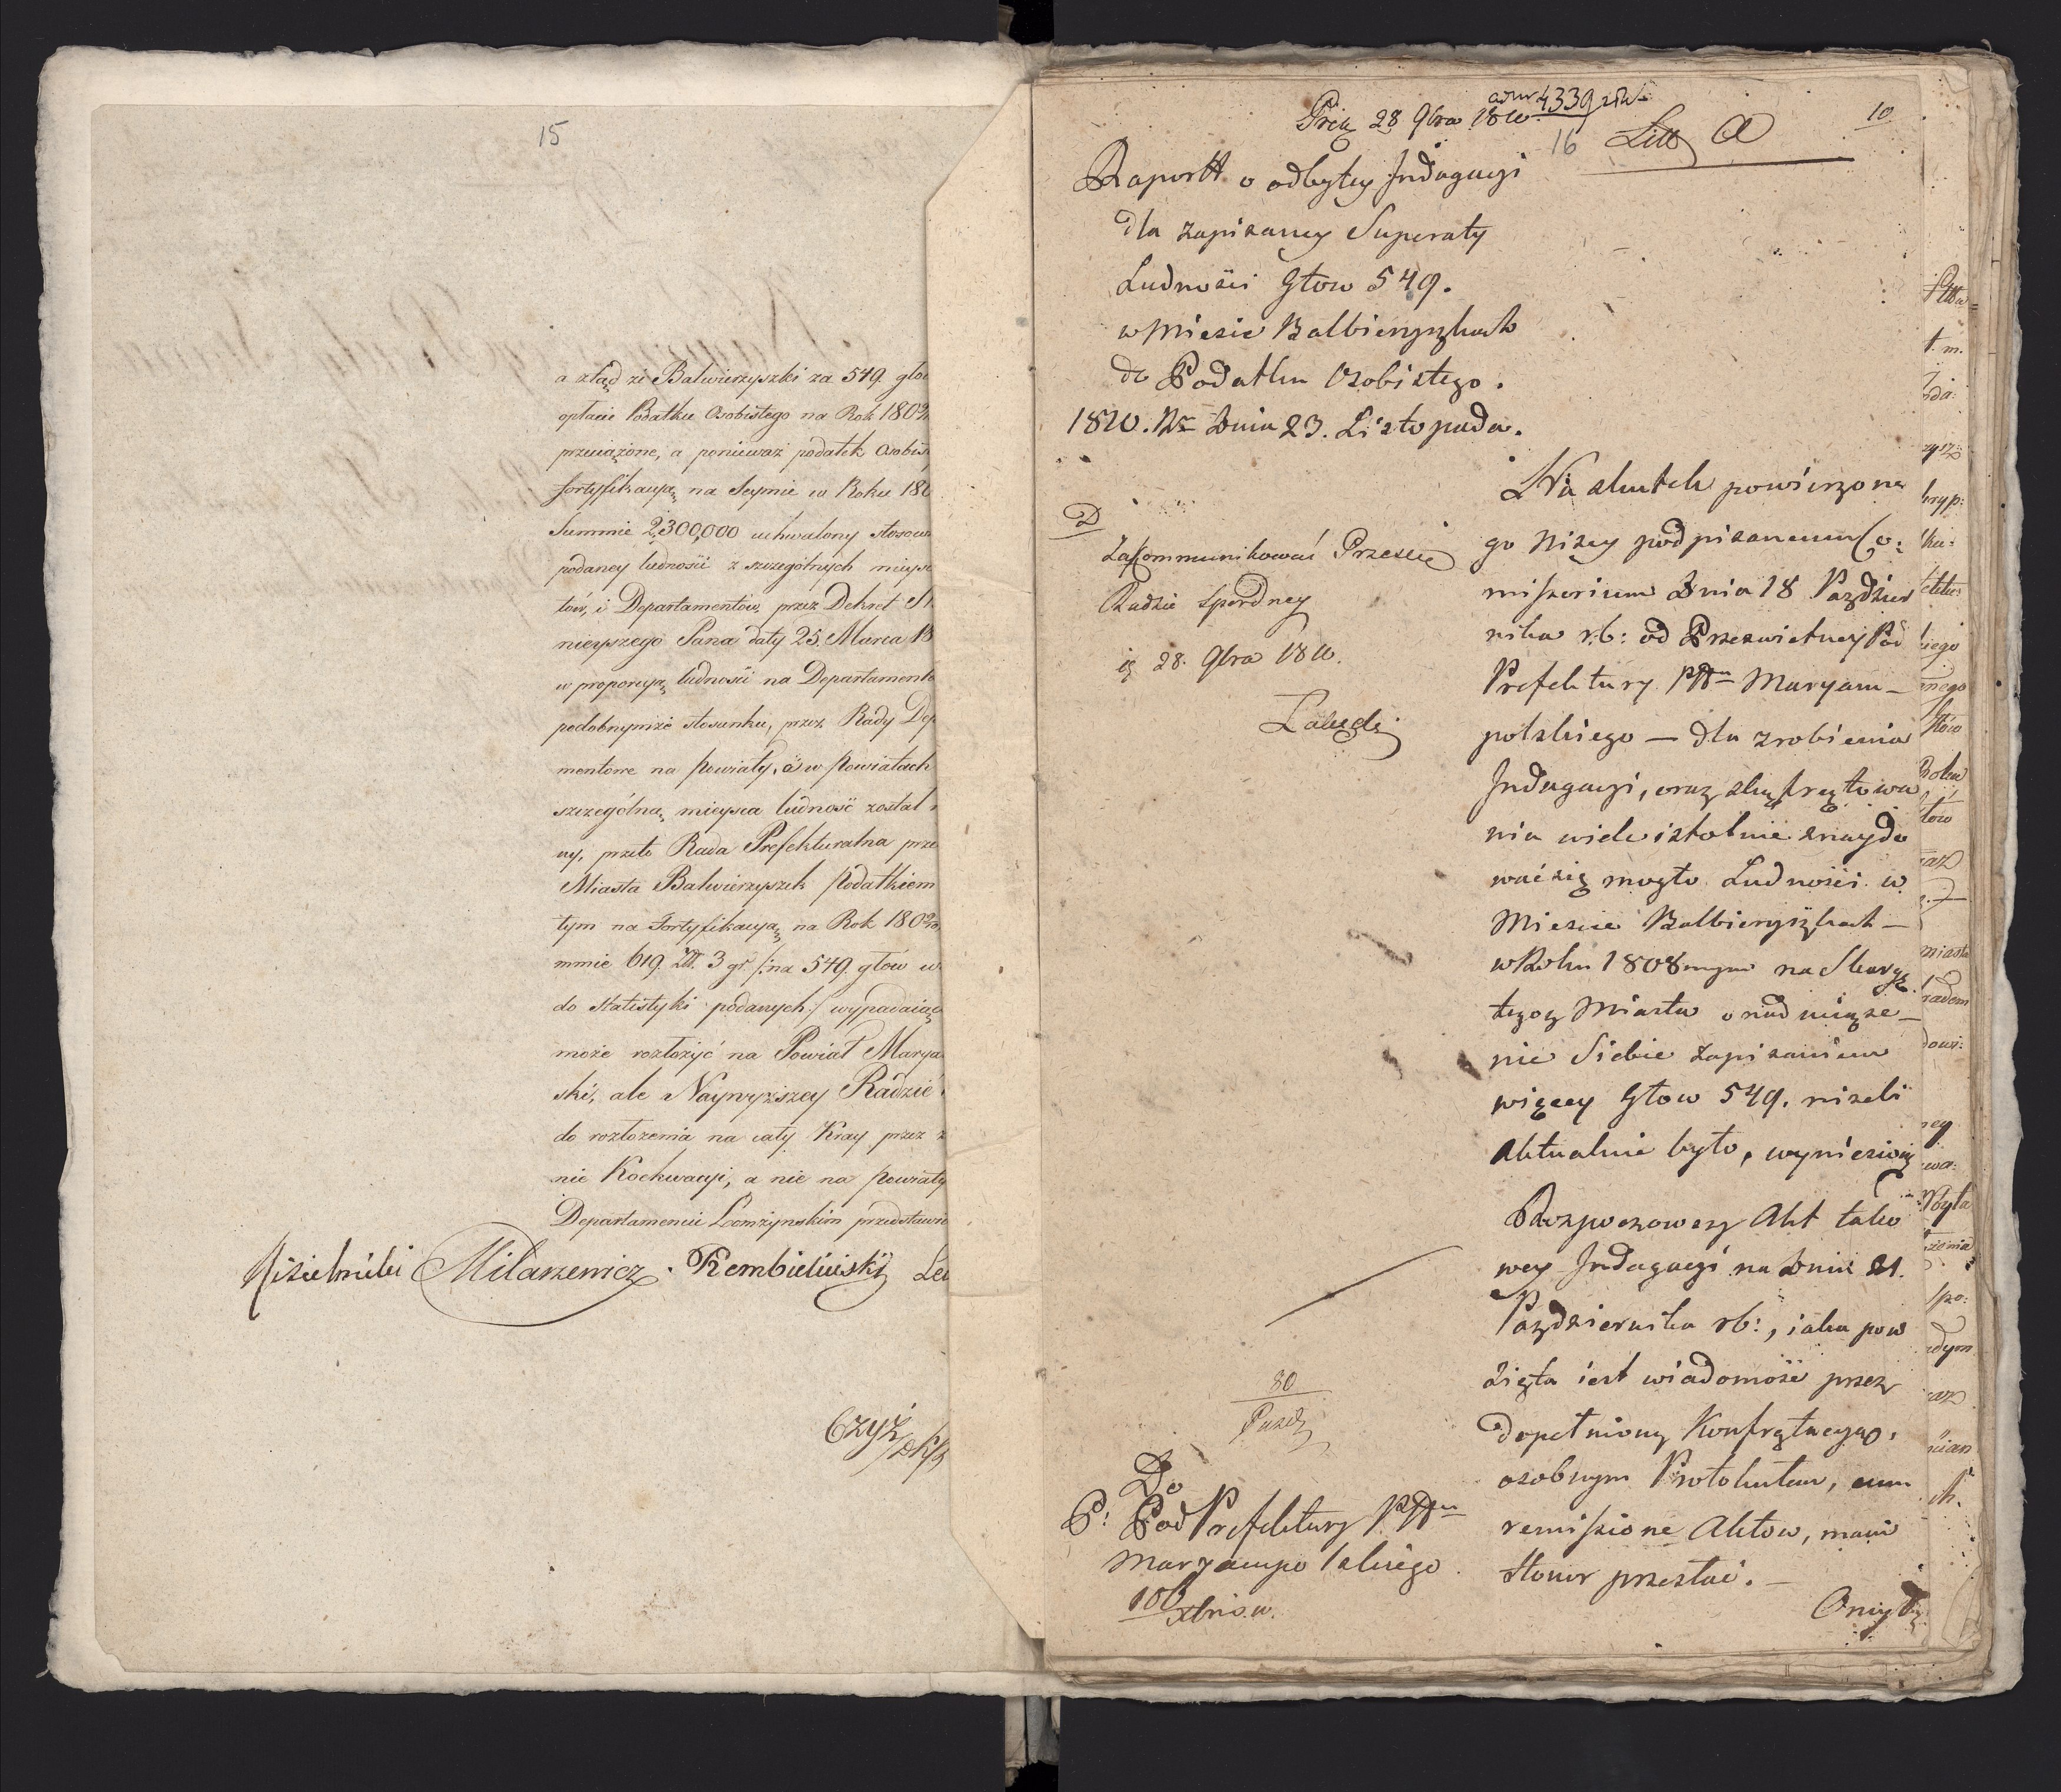 15
a ztąd że Balwierzyszki za 549. głow
opłacie Podatku Osobistego na Rok 1809/
przeciążone, a ponieważ podatek Osobis
fortyfikacyą na Seymie w Roku 180
Summie 2,300,000 uchwalony stosow
podaney ludności z szczegótnych mieysc
tów, i Departamentów, przez Dekret
nieyszego Pana daty 25. Marca 18
w proporcyą ludności na Departament
podobnymże stosunku, przez Rady Dep
mentowe na powiaty, a w powiatach
szczególną mieysca ludność został
ny, przeto Rada Prefekturalna prze
Miasta Balwierzyszek podatkiem
tym na Fortyfikacyą na Rok 1809/10
mmie 619. Zł. 3 gr /: na 549. głow w
do Statistyki podanych :/ wypadaiąc
może rozłożyć na Powiat Marya
ski, ale Naywyższey Radzie
do rozłożenia na cały Kray przez
nie Koekwacyi, a nie na powiaty
Departamencie Łomżynskim przedstawi
Kisielnicki Milanzewicz. Rembieliński
Czyż
4339
28 9bra 1810
16 Litt A
10
Raportt o odbytey Indagacyi
dla zapisaney Superaty
Ludności Głow 549.
w Mieście Balbieryszkach
do Podatku Osobistego.
1810. Rr Dnia 23. Listopada.
D
Zakommunikować Prześw
Radzie Sporney
28. 9bra 1810.
Na skutek powierzone
go niżey podpisanemu Co:
missorium Dnia 18 Pazdzier
nika r.b: od Prześwietney Pod
Prefektury PWtu Maryam-
polskiego — dla zrobienia
Indagacyi, oraz skąfrątowa
nia wiele istotnie znaydo
wać się mogło Ludności w
Mieście Balbieryszkach —
w Roku 1808mym na Skargę
tegoż Miasta o nadwiąże-
nie Siebie zapisaniem
więcey Głow 549. niżeli
aktualnie było, wyniesioną
Rozpoczowszy Akt tako
wey Indagacyi na Dniu 21.
Pazdziernika rb:, iaka pow
zięta iest wiadomość przez
dopełnioną Konfrątacyą,
osobnym Protokułem, cum
remissione Aktow, mam
Honor przesłać. —
80
Do
P: Pod Prefektury PWtu
Maryampolskiego